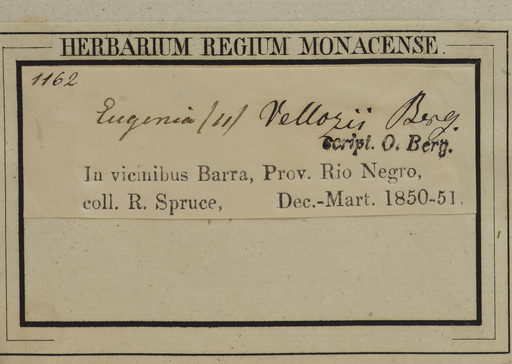 HERBARIUM REGIUM MONACENSE.
1162
Eugenia (11) Vellozii Berg.
script. O. Berg.
In vicinibus Barra, Prov. Rio Negro,
coll. R. Spruce, Dec.-Mart. 1850-51.